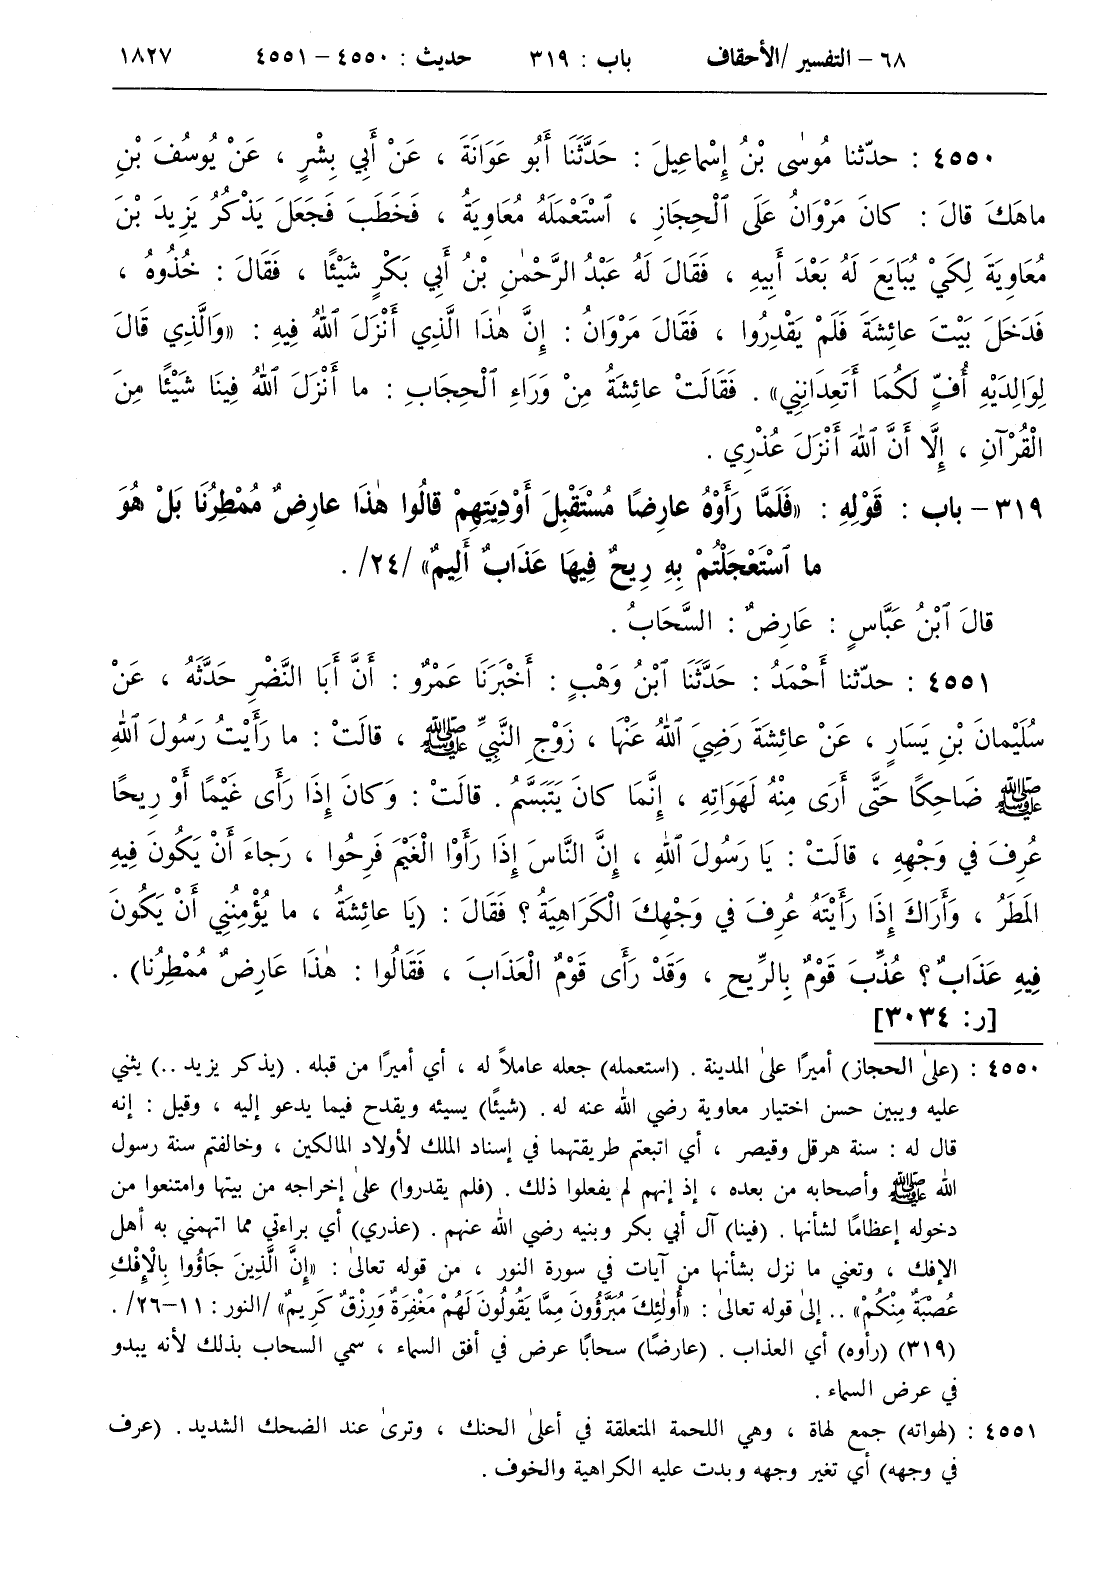 ٦٨ – التفسير /الأحقاف باب : ٣١٩ حديث : ٤٥٥٠ – ٤٥٥١ ١٨٢٧
٤٥٥٠ : حدّثنا مُوسٰى بْنُ إِسْماعِيلَ : حَدَّثَنَا أَبُو عَوَانَةَ ، عَنْ أَبِي بِشْرٍ ، عَنْ يُوسُفَ بْنِ
ماهَكَ قالَ : كانَ مَرْوَانُ عَلَى ٱلْحِجَازِ ، ٱسْتَعْمَلَهُ مُعَاوِيَةُ ، فَخَطَبَ فَجَعَلَ يَذْكُرُ يَزِيدَ بْنَ
مُعَاوِيَةَ لِكَيْ يُبَايَعَ لَهُ بَعْدَ أَبِيهِ ، فَقَالَ لَهُ عَبْدُ الرَّحْمٰنِ بْنُ أَبِي بَكْرٍ شَيْئًا ، فَقَالَ : خُذُوهُ ،
فَدَخَلَ بَيْتَ عائِشَةَ فَلَمْ يَقْدِرُوا ، فَقَالَ مَرْوَانُ : إِنَّ هٰذَا الَّذِي أَنْزَلَ ٱللّٰهُ فِيهِ : «وَالَّذِي قَالَ
لِوَالِدَيْهِ أُفٍّ لَكُمَا أَتَعِدَانِنِي» . فَقَالَتْ عائِشَةُ مِنْ وَرَاءِ ٱلْحِجَابِ : ما أَنْزَلَ ٱللّٰهُ فِينَا شَيْئًا مِنَ
الْقُرْآنِ ، إِلَّا أَنَّ ٱللّٰهَ أَنْزَلَ عُذْرِي .
٣١٩ – باب : قَوْلِهِ : «فَلَمَّا رَأَوْهُ عارِضًا مُسْتَقْبِلَ أَوْدِيَتِهِمْ قالُوا هٰذَا عارِضٌ مُمْطِرُنَا بَلْ هُوَ
ما ٱسْتَعْجَلْتُمْ بِهِ رِيحٌ فِيهَا عَذَابٌ أَلِيمٌ» /٢٤/ .
قالَ ٱبْنُ عَبَّاسٍ : عَارِضٌ : السَّحَابُ .
٤٥٥١ : حدّثنا أَحْمَدُ : حَدَّثَنَا ٱبْنُ وَهْبٍ : أَخْبَرَنَا عَمْرٌو : أَنَّ أَبَا النَّضْرِ حَدَّثَهُ ، عَنْ
سُلَيْمانَ بْنِ يَسَارٍ ، عَنْ عائِشَةَ رَضِيَ ٱللّٰهُ عَنْهَا ، زَوْجِ النَّبِيِّ ﷺ ، قالَتْ : ما رَأَيْتُ رَسُولَ ٱللّٰهِ
ﷺ ضَاحِكًا حَتَّى أَرَى مِنْهُ لَهَوَاتِهِ ، إِنَّمَا كانَ يَتَبَسَّمُ . قالَتْ : وَكانَ إِذَا رَأَى غَيْمًا أَوْ رِيحًا
عُرِفَ في وَجْهِهِ ، قالَتْ : يَا رَسُولَ ٱللّٰهِ ، إِنَّ النَّاسَ إِذَا رَأَوُا الْغَيْمَ فَرِحُوا ، رَجاءَ أَنْ يَكُونَ فِيهِ
المَطَرُ ، وَأَرَاكَ إِذَا رَأَيْتَهُ عُرِفَ في وَجْهِكَ الْكَرَاهِيَةُ ؟ فَقَالَ : (يَا عائِشَةُ ، ما يُؤْمِنُنِي أَنْ يَكُونَ
فِيهِ عَذَابٌ ؟ عُذِّبَ قَوْمٌ بِالرِّيحِ ، وَقَدْ رَأَى قَوْمٌ الْعَذَابَ ، فَقَالُوا : هٰذَا عَارِضٌ مُمْطِرُنا) .
[ر: ٣٠٣٤]
٤٥٥٠ : (على الحجاز) أميرًا على المدينة . (استعمله) جعله عاملاً له ، أي أميرًا من قبله . (يذكر يزيد ..) يثني
عليه ويبين حسن اختيار معاوية رضي الله عنه له . (شيئًا) يسيئه ويقدح فيما يدعو إليه ، وقيل : إنه
قال له : سنة هرقل وقيصر ، أي اتبعتم طريقتهما في إسناد الملك لأولاد المالكين ، وخالفتم سنة رسول
الله ﷺ وأصحابه من بعده ، إذ إنهم لم يفعلوا ذلك . (فلم يقدروا) على إخراجه من بيتها وامتنعوا من
دخوله إعظامًا لشأنها . (فينا) آل أبي بكر وبنيه رضي الله عنهم . (عذري) أي براءتي مما اتهمني به أهل
الإفك ، وتعني ما نزل بشأنها من آيات في سورة النور ، من قوله تعالى : «إِنَّ الَّذِينَ جَاؤُوا بِالْإِفْكِ
عُصْبَةٌ مِنْكُمْ» .. إلى قوله تعالى : «أُولٰئِكَ مُبَرَّؤُونَ مِمَّا يَقُولُونَ لَهُمْ مَغْفِرَةٌ وَرِزْقٌ كَرِيمٌ» /النور : ١١–٢٦/ .
(٣١٩) (رأوه) أي العذاب . (عارضًا) سحابًا عرض في أفق السماء ، سمي السحاب بذلك لأنه يبدو
في عرض السماء .
٤٥٥١ : (لهواته) جمع لهاة ، وهي اللحمة المتعلقة في أعلى الحنك ، وترى عند الضحك الشديد . (عرف
في وجهه) أي تغير وجهه وبدت عليه الكراهية والخوف .